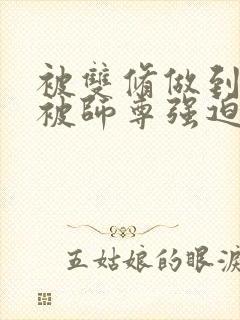 被雙脩做到
被師尊强迫
五姑娘的眼淚